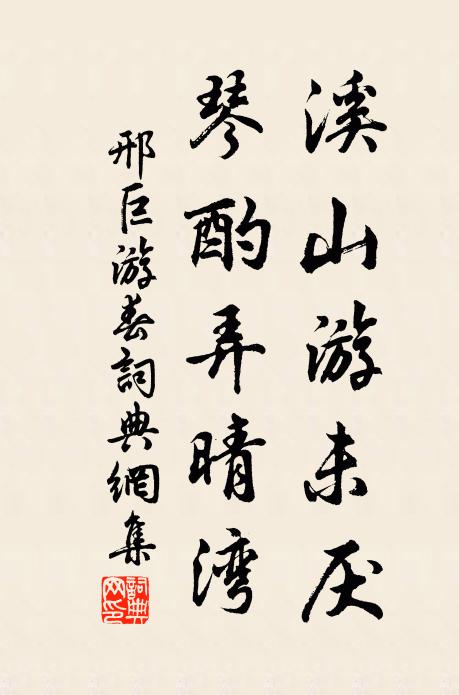 溪山游未厌
琴酌弄晴湾
邢巨游春词典網集
詞典网印